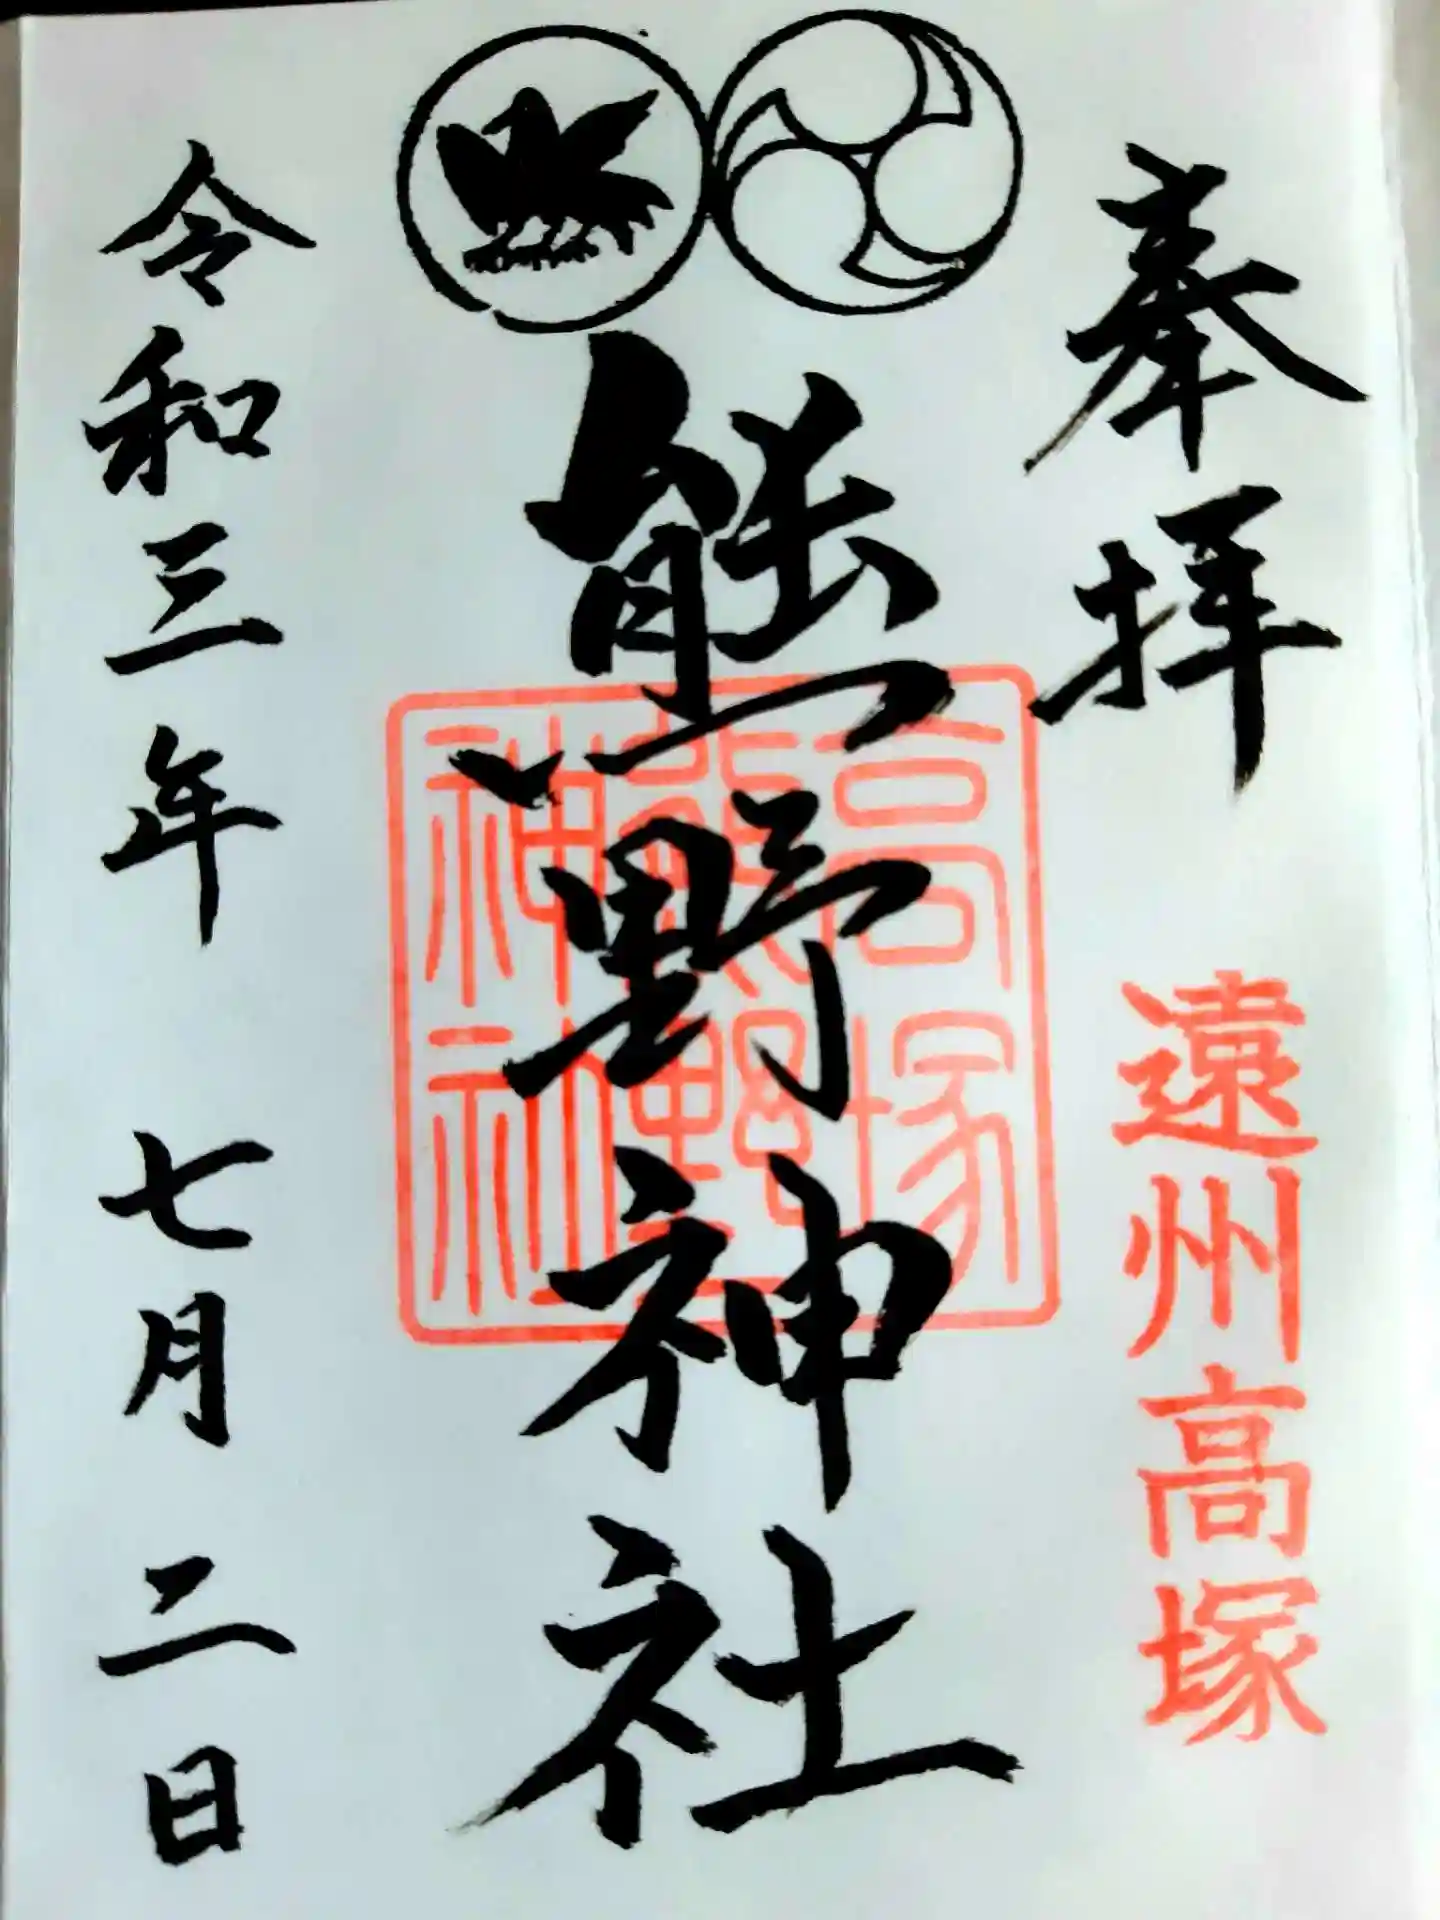 奉拝
遠州高塚
熊野神社
高塚
熊野
神社
令和三年 七月二日